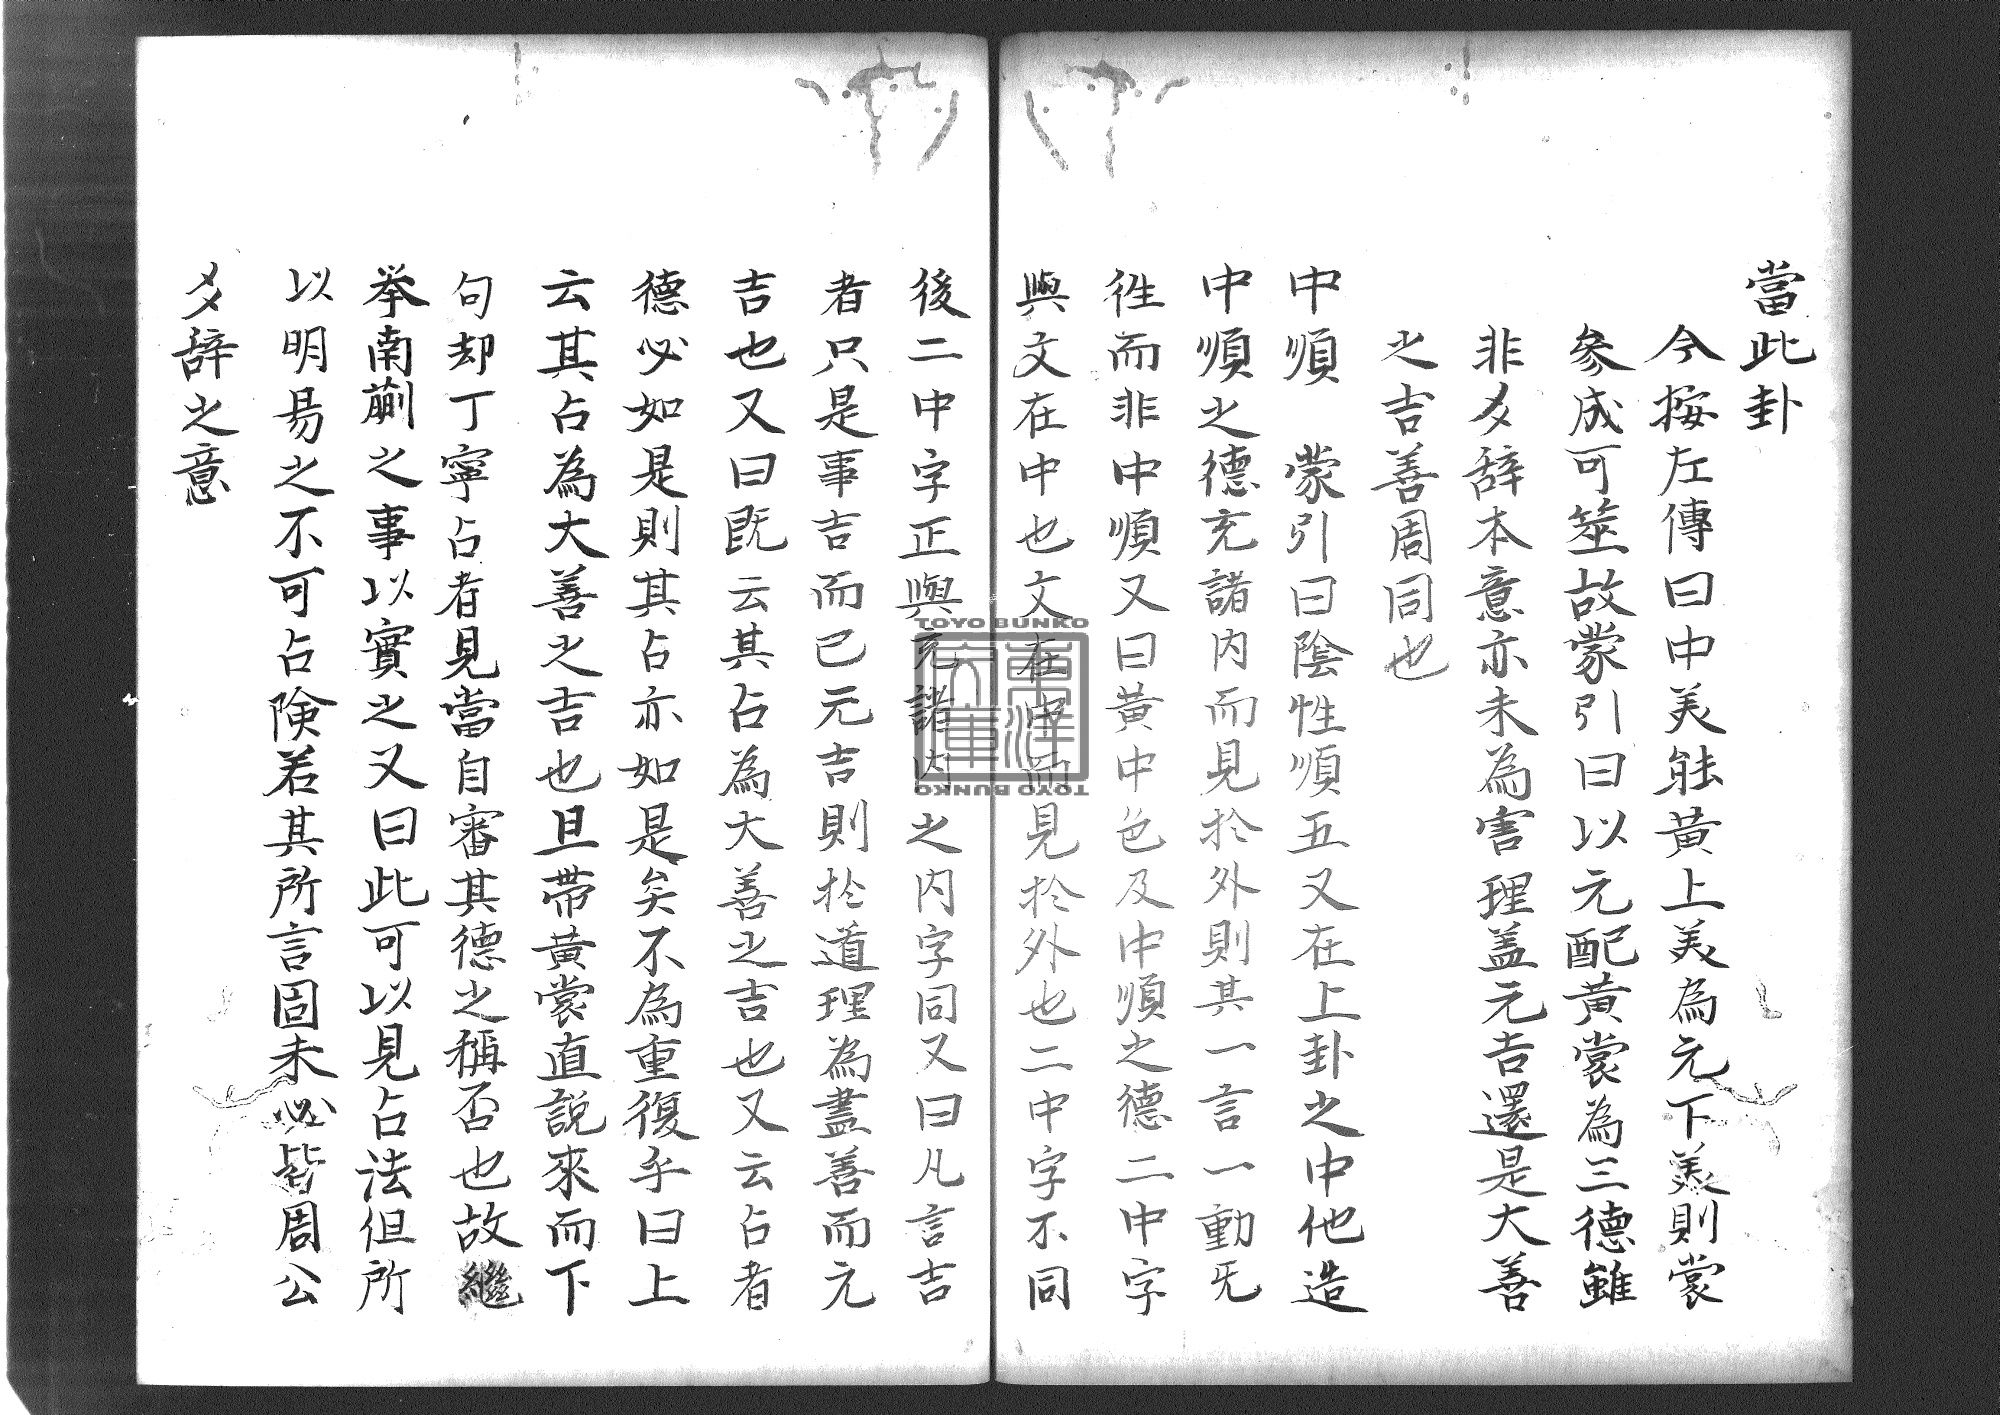 當此卦
今按左傳曰中美能黃上美為元下美則裳
參成可筮故蒙引曰以元配黃裳為三德雖
非爻辞本意亦未為害理盖元吉還是大善
之吉善周同也
中順　蒙引曰陰性順五又在上卦之中他造
中順之德充諸内而見於外則其一言一動旡
徃而非中順又曰黃中色及中順之德二中字
與文在中也文在中而見於外也二中字不同
後二中字正與充諸内之内字同又曰凡言吉
者只是事吉而已元吉則於道理為盡善而元
吉也又曰既云其占為大善之吉也又云占者
德必如是則其占亦如是矣不為重復乎曰上
云其占為大善之吉也且帶黃裳直説來而下
句却丁寧占者見當自審其德之稱否也故繼
挙南蒯之事以實之又曰此可以見占法但所
以明易之不可占険若其所言固未必皆周公
爻辞之意
TOYO BUNKO
東洋文庫
TOYO BUNKO